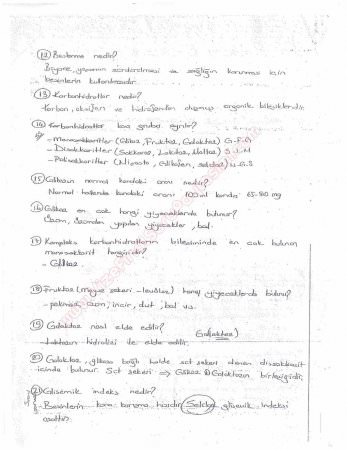 (12) Beslenme nedir?
Büyüme, yaşamın sürdürülmesi ve sağlığın korunması için
besinlerin kullanılmasıdır.
(13) Karbonhidratlar nedir?
Karbon, oksijen ve hidrojenden oluşmuş organik bileşiklerdir.
(14) Karbonhidratlar kaça ayrılır?
- Monosakkaritler (Glikoz, Fruktoz, Galaktoz) G.F.G
- Disakkaritler (Sakkaroz, Laktoz, Maltoz) S.L.M
- Polisakkaritler (Nişasta, Glikojen, selüloz) N.G.S
(15) Glikozun normal kandaki oranı nedir?
Normal hallerde kandaki oranı 100 ml kanda 65-80 mg
(16) Glikoz en çok hangi yiyeceklerde bulunur?
Üzüm, üzümden yapılan yiyecekler, bal.
(17) Kompleks karbonhidratların bileşiminde en çok bulunan
monosakkarit hangisidir?
- Glikoz
(18) Fruktoz (meyve şekeri - levüloz) hangi yiyeceklerde bulunur?
- pekmez, üzüm, incir, dut, bal vs.
(19) Galaktoz nasıl elde edilir?
- Laktozun hidrolizi ile elde edilir.
(20) Galaktoz, glikoza bağlı halde süt şekeri denen disakkarit
içinde bulunur. Süt şekeri => Glikoz Galaktozun birleşiğidir.
(21) Glisemik indeks nedir?
- Besinlerin kana karışma hızıdır. glisemik indeksi